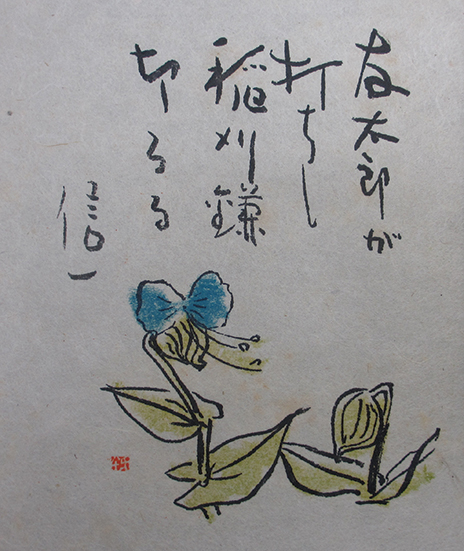 友太郎が
打ちし
稲刈鎌
切るる
信一